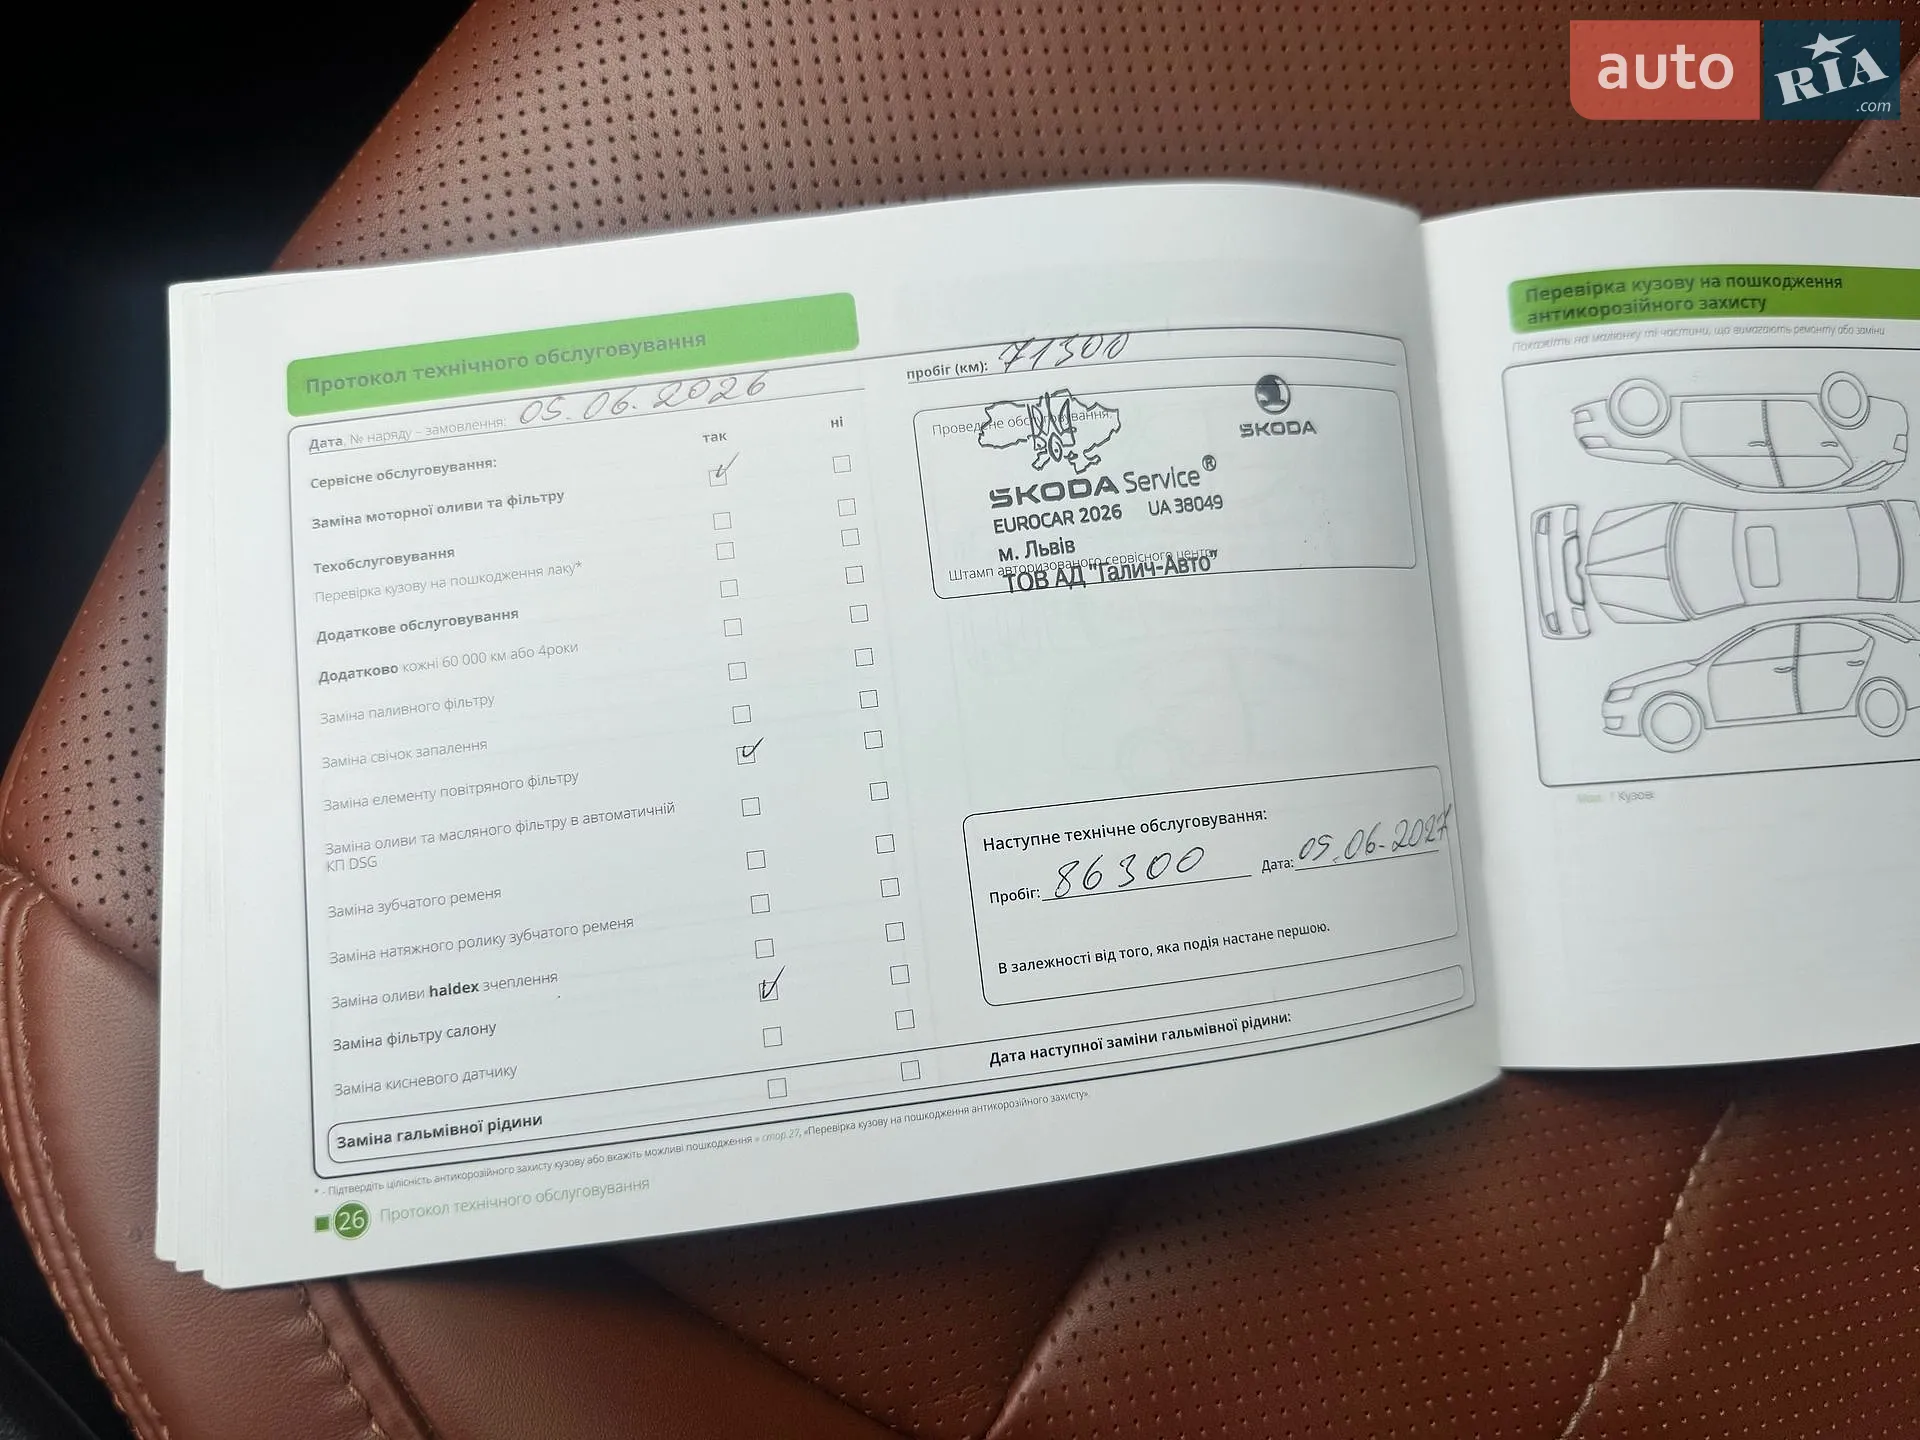 auto RIA.com
Протокол технічного обслуговування
Дата, № наряду – замовлення: 05.06.2026
пробіг (км): 71300
так ні
Сервісне обслуговування:
Заміна моторної оливи та фільтру
Техобслуговування
Перевірка кузову на пошкодження лаку*
Додаткове обслуговування
Додатково кожні 60 000 км або 4роки
Заміна паливного фільтру
Заміна свічок запалення
Заміна елементу повітряного фільтру
Заміна оливи та масляного фільтру в автоматичній
КП DSG
Заміна зубчатого ременя
Заміна натяжного ролику зубчатого ременя
Заміна оливи haldex зчеплення
Заміна фільтру салону
Заміна кисневого датчику
Заміна гальмівної рідини
Проведене обслуговування:
SKODA
SKODA Service®
EUROCAR 2026 UA 38049
м. Львів
Штамп авторизованого сервісного центру
ТОВ АД "Галич-Авто"
Наступне технічне обслуговування:
Пробіг: 86300 Дата: 05.06-2027
В залежності від того, яка подія настане першою.
Дата наступної заміни гальмівної рідини:
* - Підтвердіть цілісність антикорозійного захисту кузову або вкажіть можливі пошкодження » стор.27, «Перевірка кузову на пошкодження антикорозійного захисту».
26 Протокол технічного обслуговування
Перевірка кузову на пошкодження
антикорозійного захисту
Покажіть на малюнку ті частини, що вимагають ремонту або заміни
Мал. 1 Кузов